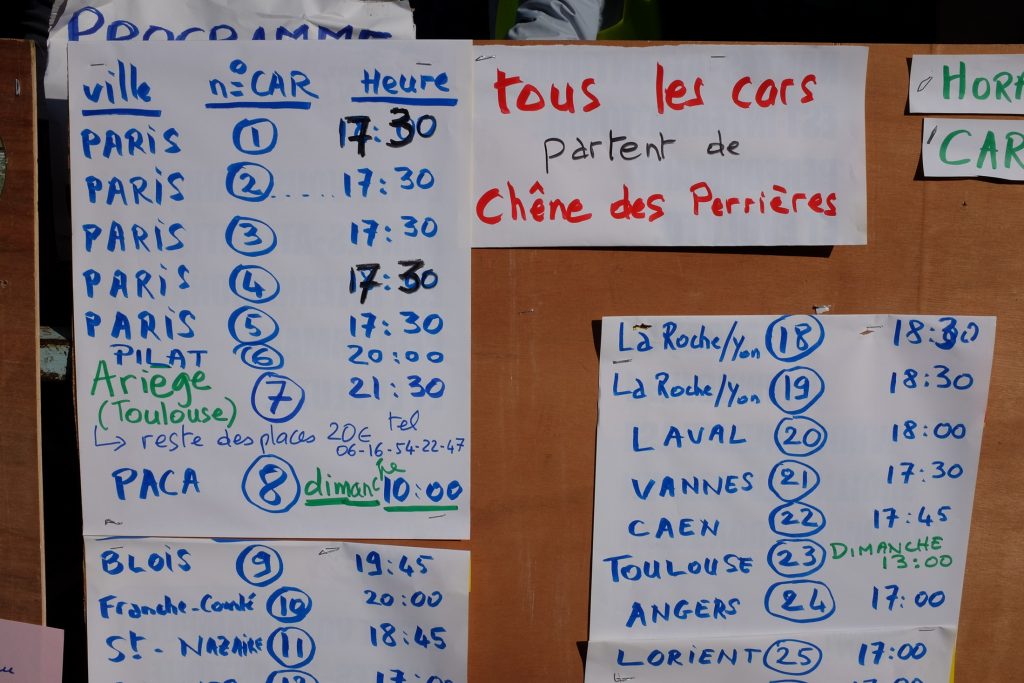 PROGRAMME
ville n° CAR Heure
PARIS 1 17:30
PARIS 2..... 17:30
PARIS 3 17:30
PARIS 4 17:30
PARIS 5 17:30
PILAT 6 20:00
Ariège 7 21:30
(Toulouse)
↳ reste des places 20€ tel
06-16-54-22-47
PACA 8 dimanche 10:00
BLOIS 9 19:45
Franche-Comté 10 20:00
St-NAZAIRE 11 18:45
tous les cars
partent de
Chêne des Perrières
HORA
CAR
La Roche/Yon 18 18:30
La Roche/Yon 19 18:30
LAVAL 20 18:00
VANNES 21 17:30
CAEN 22 17:45
TOULOUSE 23 DIMANCHE
13:00
ANGERS 24 17:00
LORIENT 25 17:00